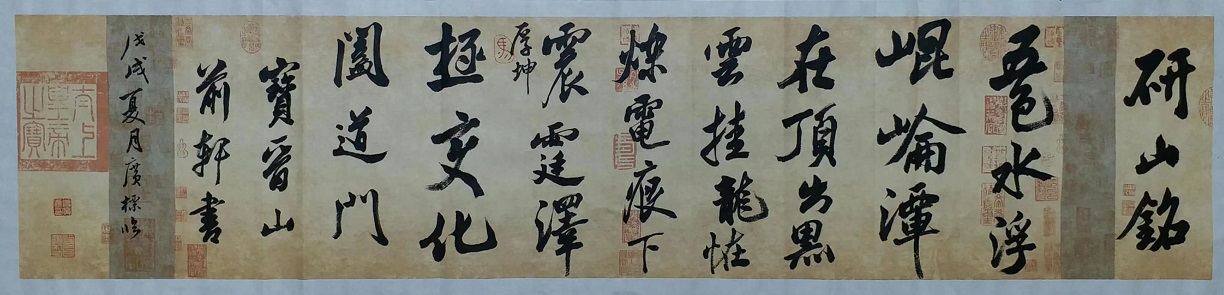 研山銘
五色水浮
崐崘潭
在頂出黑
雲挂龍怪
爍電痕下
震霆澤
厚坤
極變化
闔道門
寶晉山
前軒書
戊戌夏月廣標臨
太上皇帝之寶